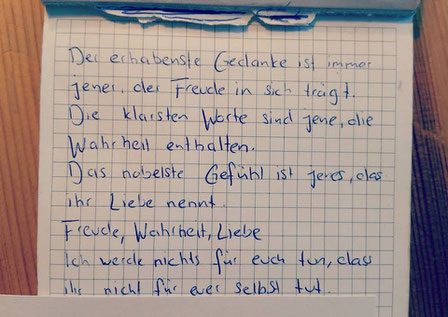 Der erhabenste Gedanke ist immer
jener, der Freude in sich trägt.
Die klarsten Worte sind jene, die
Wahrheit enthalten.
Das nobelste Gefühl ist jenes, das
ihr Liebe nennt.
Freude, Wahrheit, Liebe
Ich werde nichts für euch tun, dass
ihr nicht für euer selbst tut.